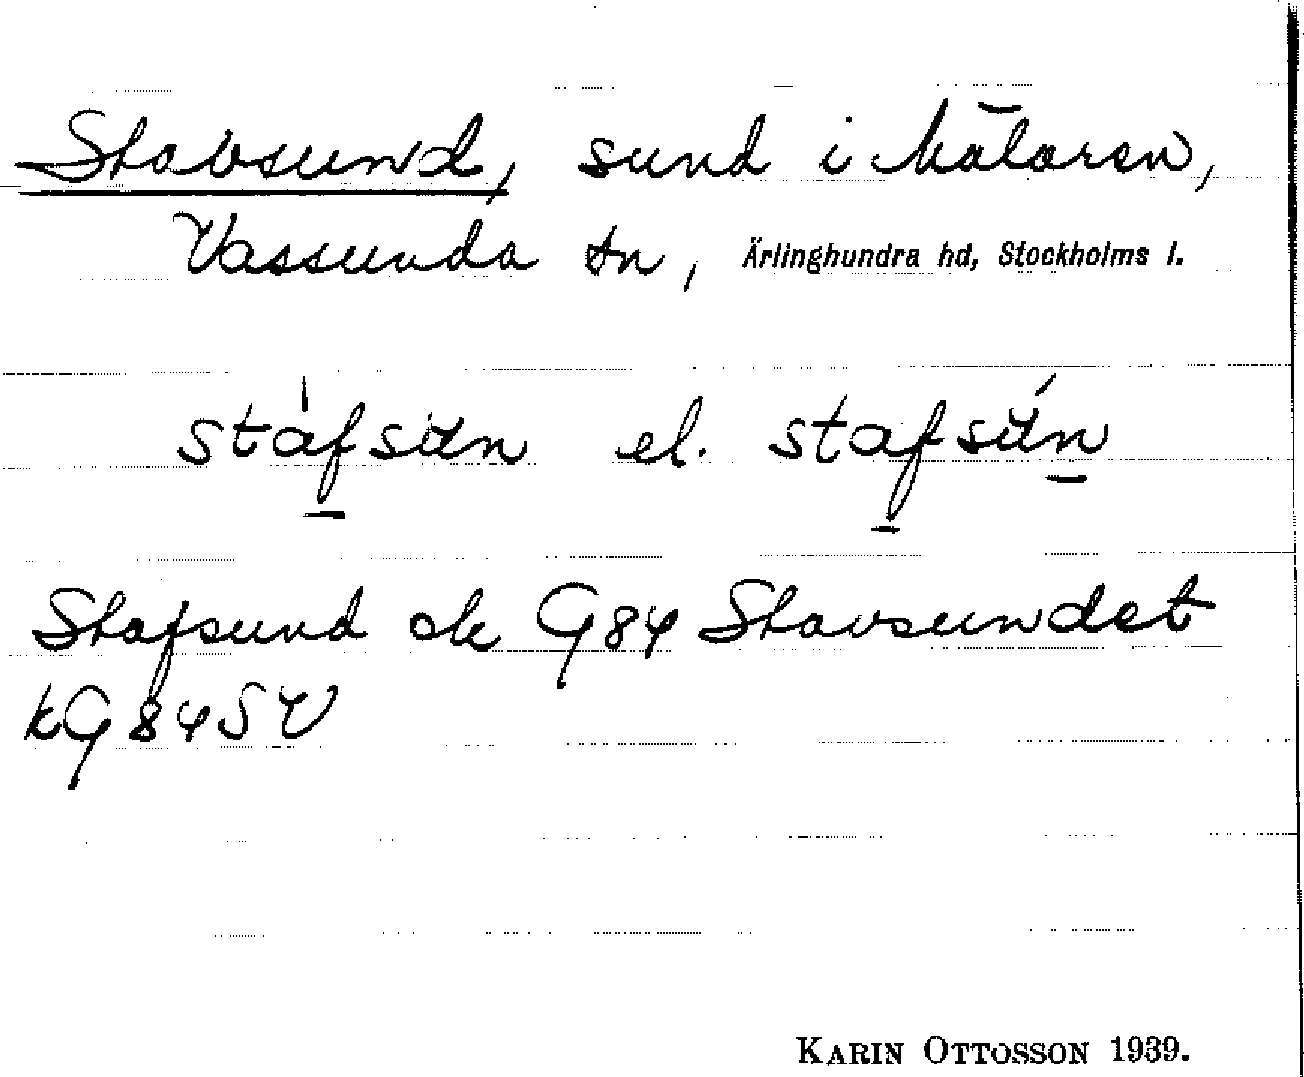 Stavsund, sund i Mälaren,
Vassunda sn, Ärlinghundra hd, Stockholms l.
stáfsɯn el. stafsɯ́n
Stafsund ek G84 Stavsundet
kG84SV
KARIN OTTOSSON 1939.